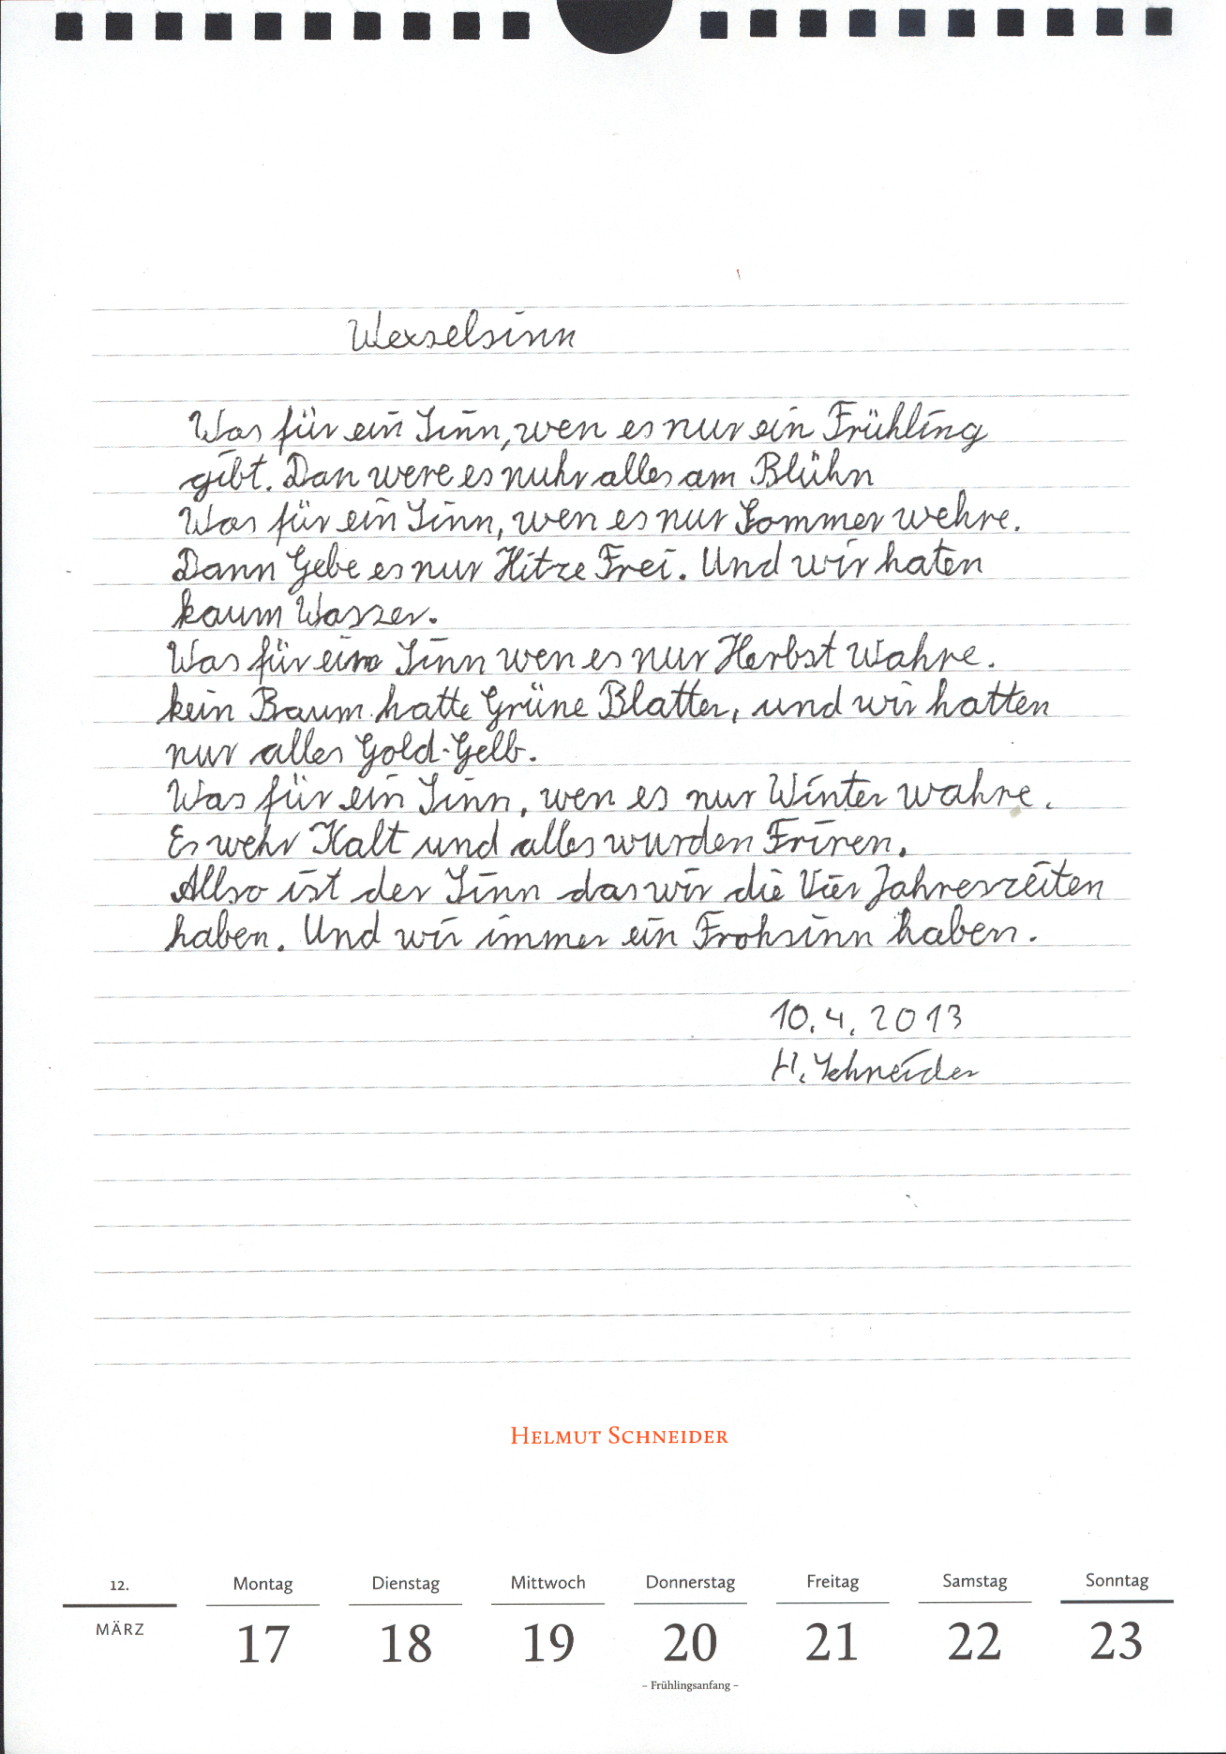 Wexselsinn
Was für ein Sinn, wen es nur ein Frühling
gibt. Dan were es nuhr alles am Blühn
Was für ein Sinn, wen es nur Sommer wehre.
Dann Gebe es nur Hitze Frei. Und wir haten
kaum Wasser.
Was für ein Sinn wen es nur Herbst Wahre.
kein Baum hatte Grüne Blatter, und wir hatten
nur alles Gold-Gelb.
Was für ein Sinn, wen es nur Winter wahre.
Es wehr Kalt und alles wurden Friren.
Allso ist der Sinn das wir die Vier Jahreszeiten
haben. Und wir immer ein Frohsinn haben.
10.4.2013
H. Schneider
HELMUT SCHNEIDER
12. Montag Dienstag Mittwoch Donnerstag Freitag Samstag Sonntag
MÄRZ 17 18 19 20 21 22 23
– Frühlingsanfang –